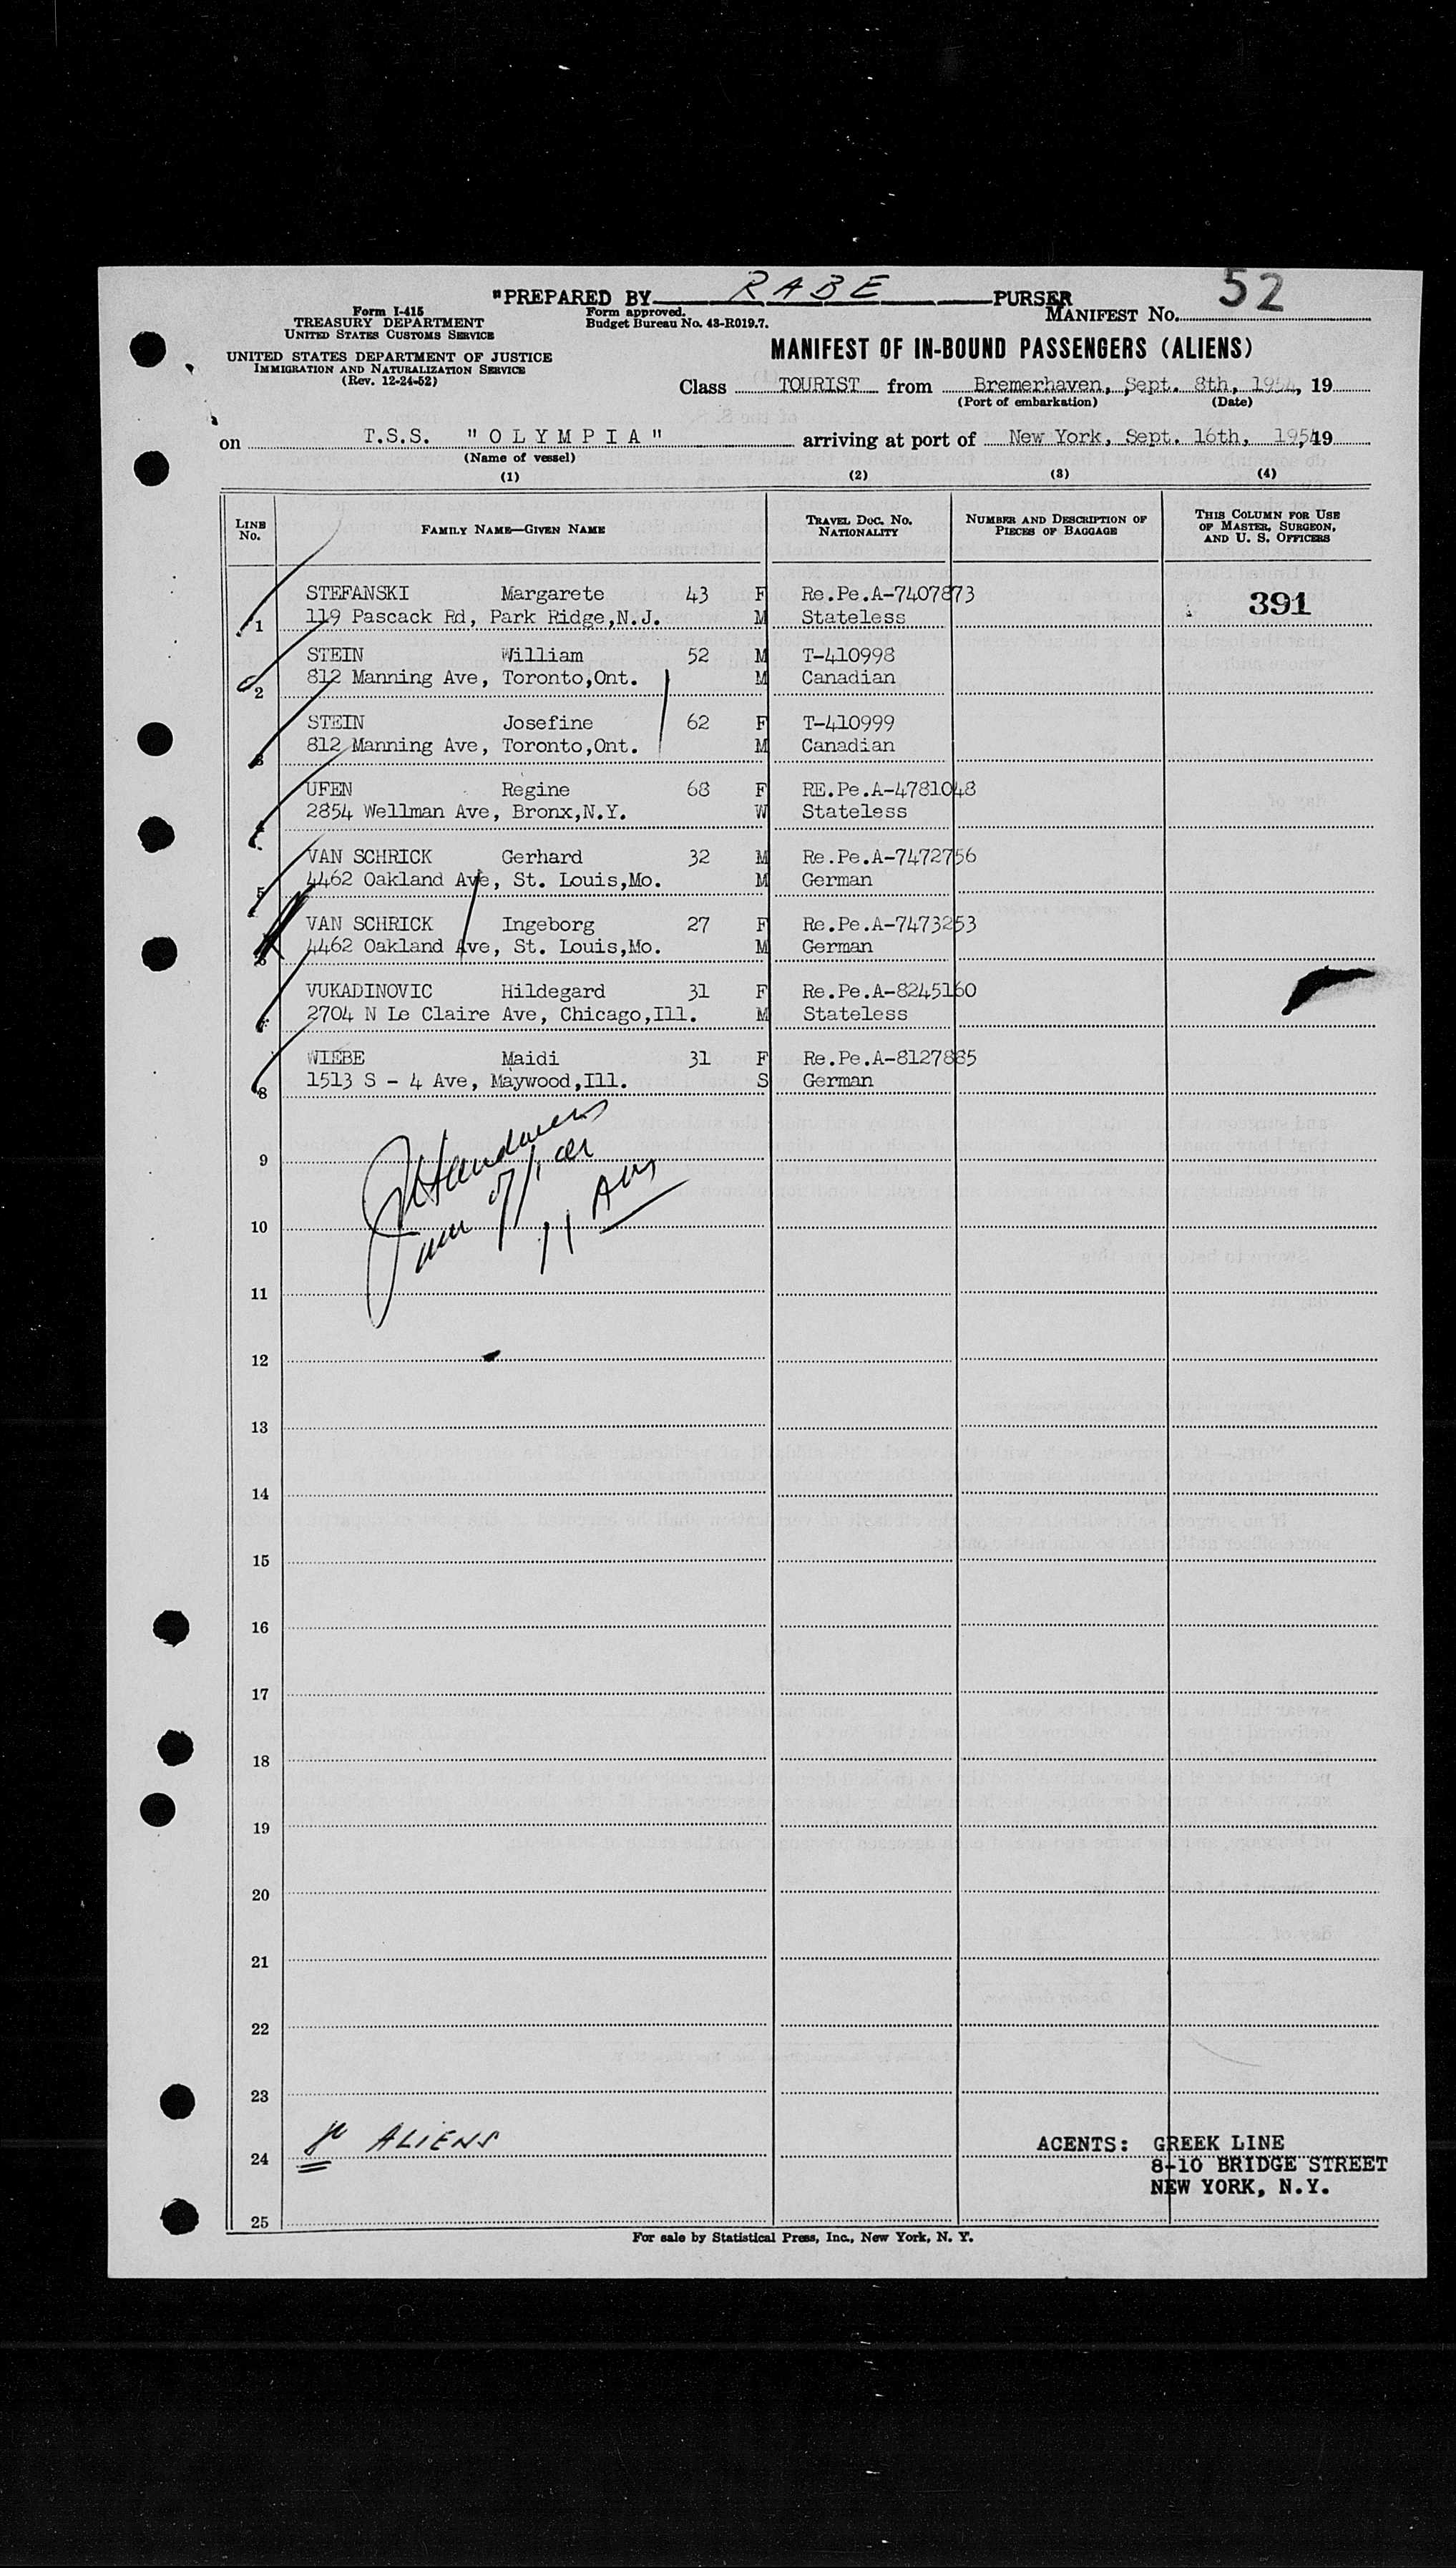 "PREPARED BY RABE PURSER
52
Form I-415
TREASURY DEPARTMENT
UNITED STATES CUSTOMS SERVICE
Form approved.
Budget Bureau No. 43-R019.7.
MANIFEST No.
UNITED STATES DEPARTMENT OF JUSTICE
IMMIGRATION AND NATURALIZATION SERVICE
(Rev. 12-24-52)
MANIFEST OF IN-BOUND PASSENGERS (ALIENS)
Class TOURIST from Bremerhaven, Sept. 8th, 1954, 19
(Port of embarkation) (Date)
on T.S.S. "OLYMPIA" arriving at port of New York, Sept. 16th, 1954, 19
(Name of vessel)
(1) (2) (3) (4)
LINE No. FAMILY NAME—GIVEN NAME TRAVEL DOC. NO. NATIONALITY NUMBER AND DESCRIPTION OF PIECES OF BAGGAGE THIS COLUMN FOR USE OF MASTER, SURGEON, AND U. S. OFFICERS
STEFANSKI Margarete 43 F Re.Pe.A-7407873 391
1 119 Pascack Rd, Park Ridge,N.J. M Stateless
STEIN William 52 M T-410998
2 812 Manning Ave, Toronto,Ont. M Canadian
STEIN Josefine 62 F T-410999
3 812 Manning Ave, Toronto,Ont. M Canadian
UFEN Regine 68 F RE.Pe.A-4781048
4 2854 Wellman Ave, Bronx,N.Y. W Stateless
VAN SCHRICK Gerhard 32 M Re.Pe.A-7472756
5 4462 Oakland Ave, St. Louis,Mo. M German
VAN SCHRICK Ingeborg 27 F Re.Pe.A-7473253
6 4462 Oakland Ave, St. Louis,Mo. M German
VUKADINOVIC Hildegard 31 F Re.Pe.A-8245160
7 2704 N Le Claire Ave, Chicago,Ill. M Stateless
WIEBE Maidi 31 F Re.Pe.A-8127885
8 1513 S - 4 Ave, Maywood,Ill. S German
9
10
11
12
13
14
15
16
17
18
19
20
21
22
23
ALIENS
24
AGENTS: GREEK LINE
8-10 BRIDGE STREET
NEW YORK, N.Y.
25
For sale by Statistical Press, Inc., New York, N. Y.